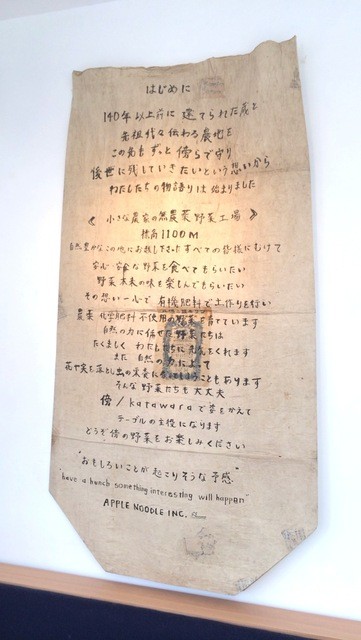 はじめに
140年以上前に建てられた蔵と
先祖代々伝わる農地を
この先もずっと傍らで守り
後世に残していきたいという想いから
わたしたちの物語りは始まりました
《小さな農家の無農薬野菜工場》
標高1100M
自然豊かなこの地にお越し下さったすべての皆様にむけて
安心安全な野菜を食べてもらいたい
野菜本来の味を楽しんでもらいたい
その想い一心で有機肥料で土作りを行い
農薬 化学肥料不使用の野菜を育てています
自然の力に任せた野菜たちは
たくましくわたしたちに元気をくれます
また自然の力によって
花や実を落とし出の実をにしまうこともあります
そんな野菜たちも大丈夫
傍/katawaraで姿をかえて
テーブルの主役になります
どうぞ傍の野菜をお楽しみください
"おもしろいことが起こりそうな予感"
"have a hunch something interesting will happen"
APPLE NOODLE INC.